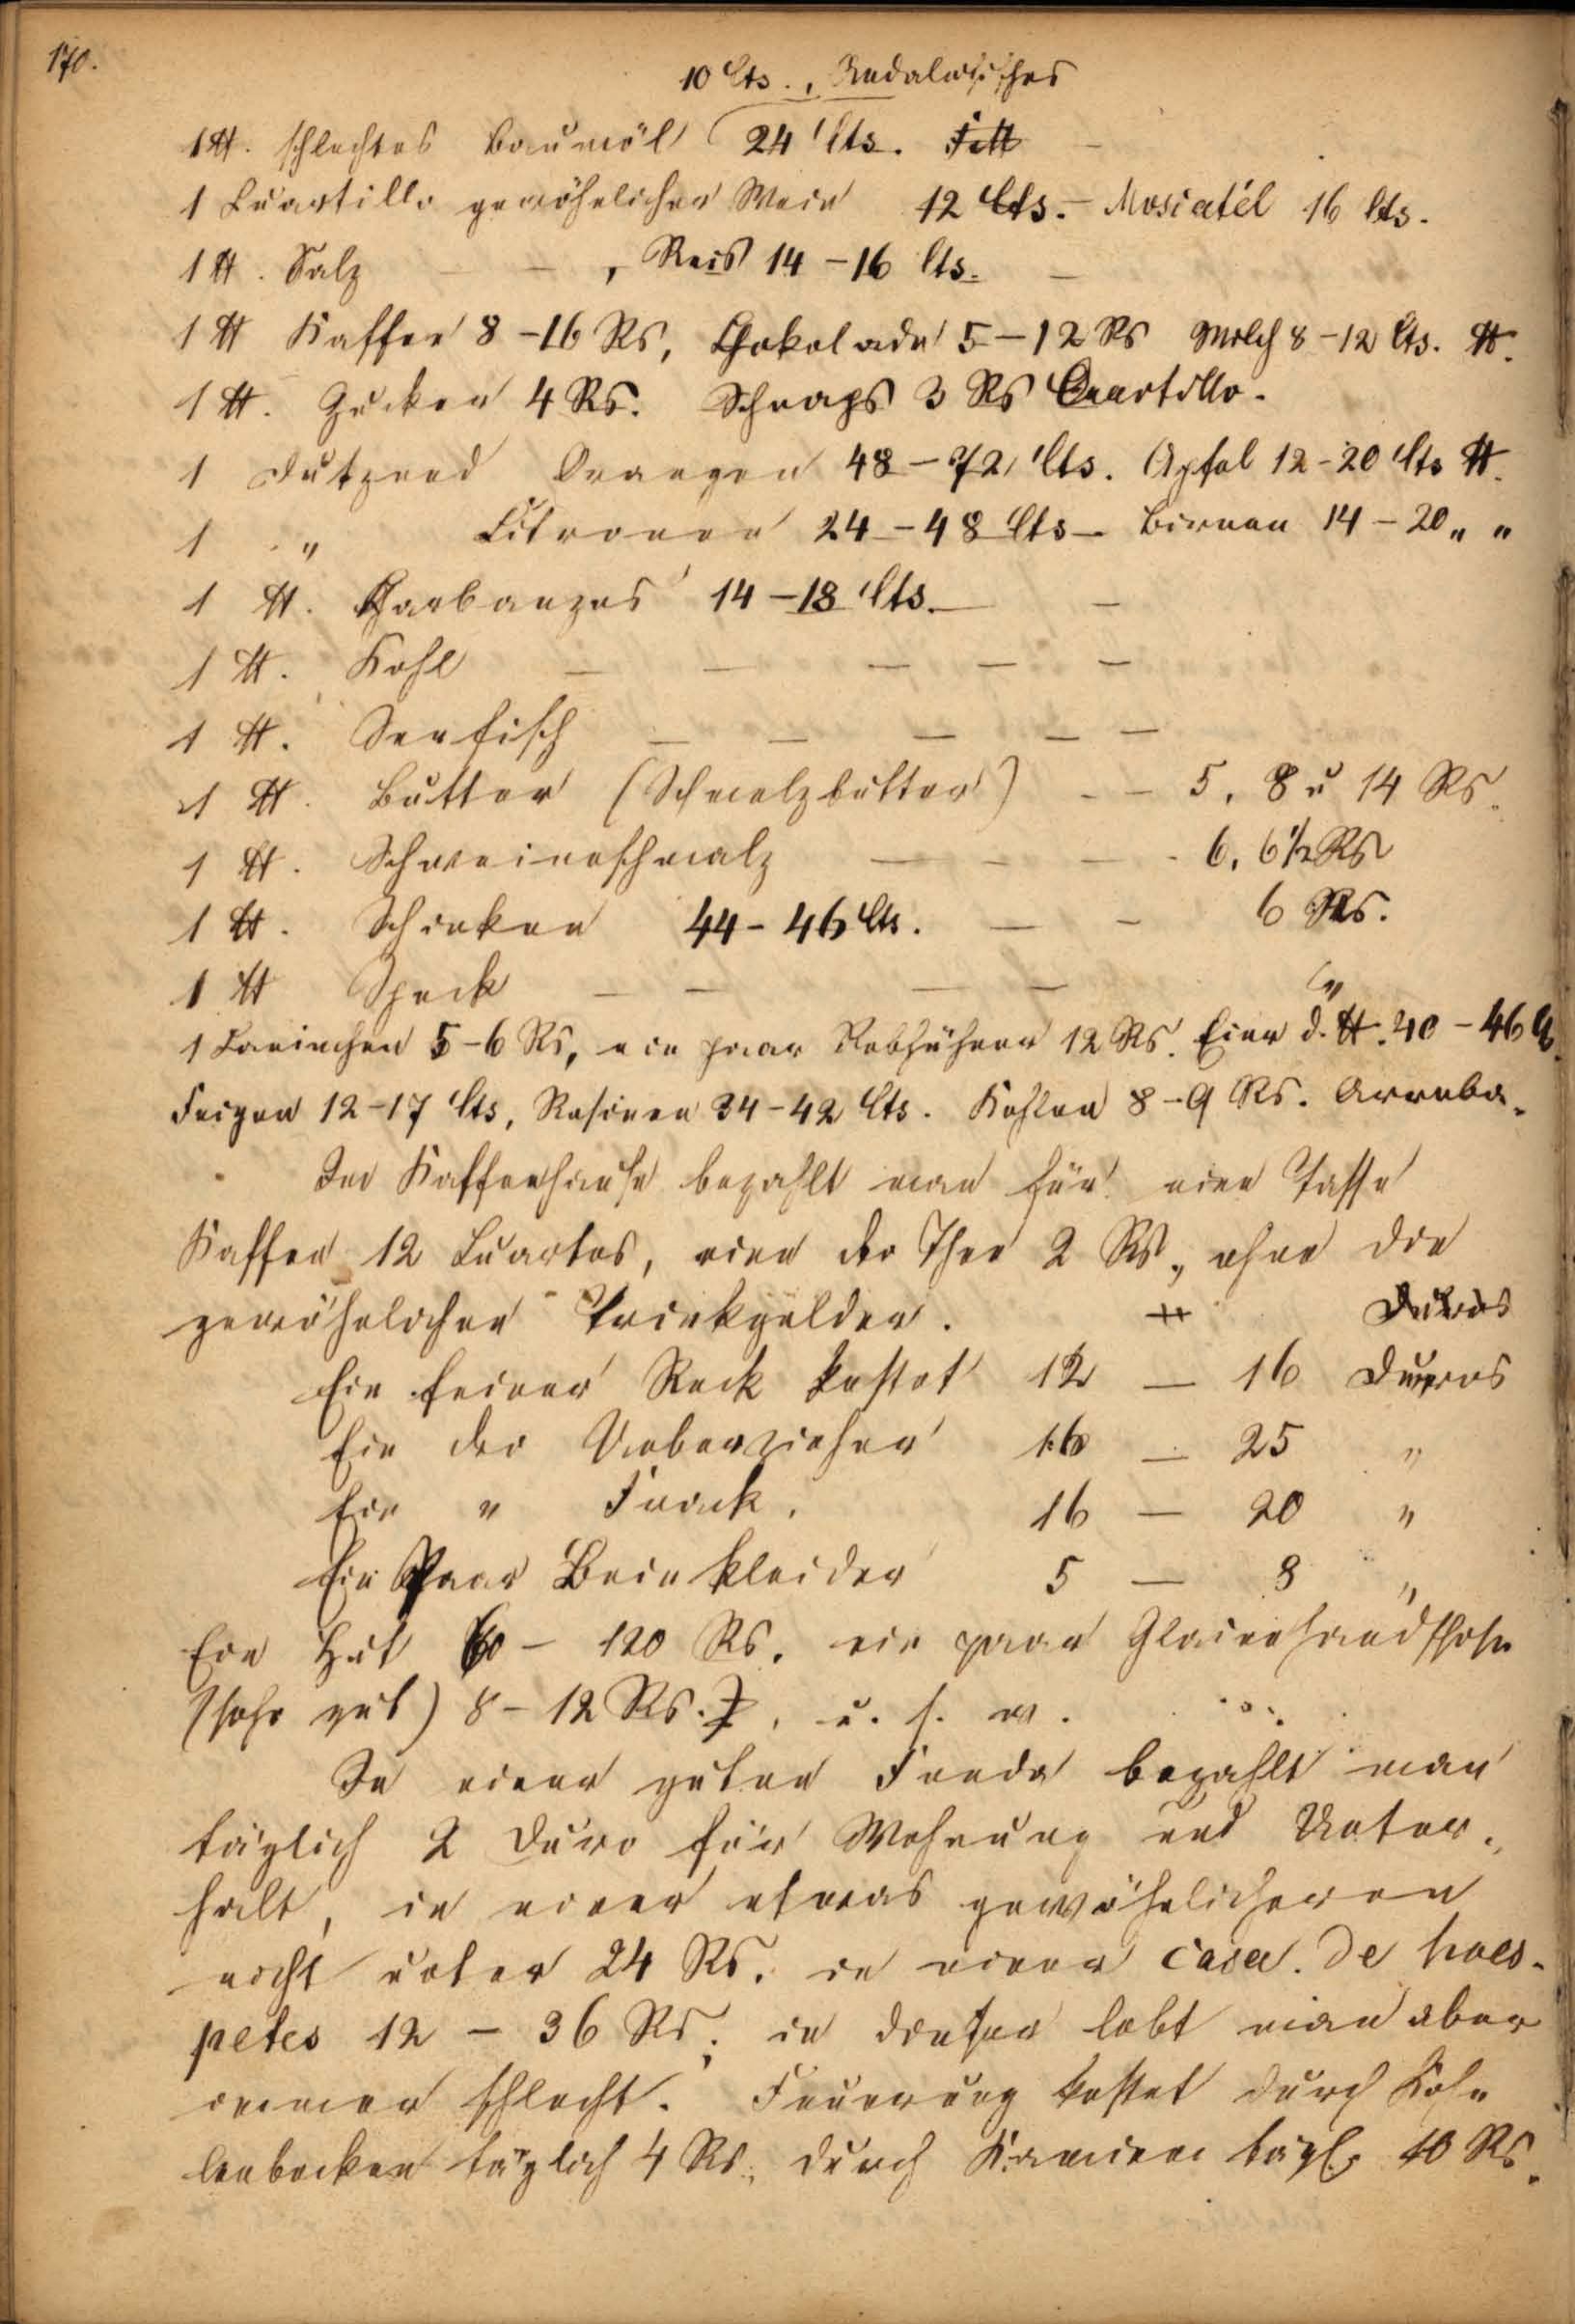 170.
10 Cts., Andalusisches
1 ℔. schlechtes Baumöl 24 Cts. Fett
1 Cuartillo gewöhnlicher Wein 12 Cts. – Moscatél 16 Cts.
1 ℔. Salz – – , Reis 14 – 16 Cts. –
1 ℔ Kaffee 8 – 16 Rs, Chokolade 5 – 12 Rs Milch 8 – 12 Cts. ℔.
1 ℔. Zucker 4 Rs. Schnaps 3 Rs Cuartillo.
1 Dutzend Orangen 48 – 72 Cts. Apfel 12 – 20 Cts ℔.
1 " Citronen 24 – 48 Cts – Birnen 14 – 20 " "
1 ℔. Garbanzos 14 – 18 Cts. – –
1 ℔. Kohl – – – – –
1 ℔. Seefisch – – – – –
1 ℔. Butter (Schmelzbutter) – – 5, 8 u 14 Rs.
1 ℔. Schweineschmalz – – – – 6, 6 1/2 Rs
1 ℔. Schinken 44 – 46 Cts. – – 6 Rs.
1 ℔ Speck – – – – "
1 Caninchen 5 – 6 Rs, ein paar Rebhühner 12 Rs. Eier d. ℔. 40 – 46
Feigen 12 – 17 Cts, Rosinen 34 – 42 Cts. Kohlen 8 – 9 Rs. Arroba.
Im Kaffeehause bezahlt man für eine Tasse
Kaffee 12 Cuartos, eine do Thee 2 Rs, ohne die
gewöhnlichen Trinkgelder. Duros
Ein feiner Rock kostet 12 – 16 Duros
Ein do Ueberzieher 16 – 25 "
Ein " Frack. 16 – 20 "
Ein Paar Beinkleider 5 – 8 "
Ein Hut 60 – 120 Rs. ein paar Glaceehandschuhe
(sehr gut) 8 – 12 Rs., u. s. w.
In einer guten Fonda bezahlt man
täglich 2 Duro für Wohnung und Unter-
halt, in einer etwas gewöhnlicheren
nicht unter 24 Rs. in einer casa de hues-
petes 12 – 36 Rs; in dieser lebt man aber
immer schlecht. Feuerung kostet durch Koh-
lenbecken täglich 4 Rs, durch Kamine tägl. 10 Rs.